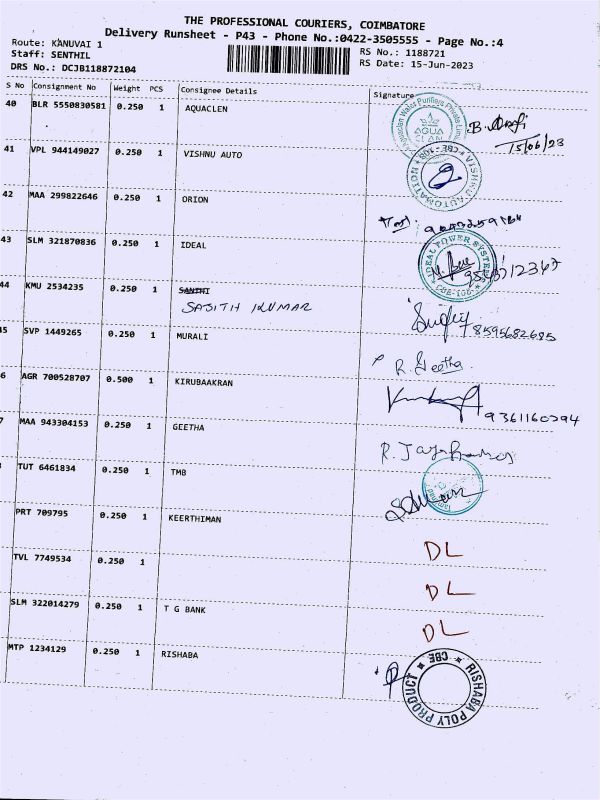 THE PROFESSIONAL COURIERS, COIMBATORE
Delivery Runsheet - P43 - Phone No.:0422-3505555 - Page No.:4
Route: KANUVAI 1
Staff: SENTHIL
DRS No.: DCJB118872104
RS No.: 1188721
RS Date: 15-Jun-2023
S No Consignment No Weight PCS Consignee Details Signature
40 BLR 5550830581 0.250 1 AQUACLEN
B.
15/06/23
41 VPL 944149027 0.250 1 VISHNU AUTO
42 MAA 299822646 0.250 1 ORION
43 SLM 321870836 0.250 1 IDEAL
IDEAL POWER SYSTEM
44 KMU 2534235 0.250 1 SANTHI
SAJITH KUMAR
8595682685
45 SVP 1449265 0.250 1 MURALI
R. Geetha
6 AGR 700528707 0.500 1 KIRUBAAKRAN
9361160294
7 MAA 943304153 0.250 1 GEETHA
TUT 6461834 0.250 1 TMB
PRT 709795 0.250 1 KEERTHIMAN
DL
TVL 7749534 0.250 1
DL
SLM 322014279 0.250 1 T G BANK
DL
MTP 1234129 0.250 1 RISHABA
RISHABA POLY PRODUCT * CBE *